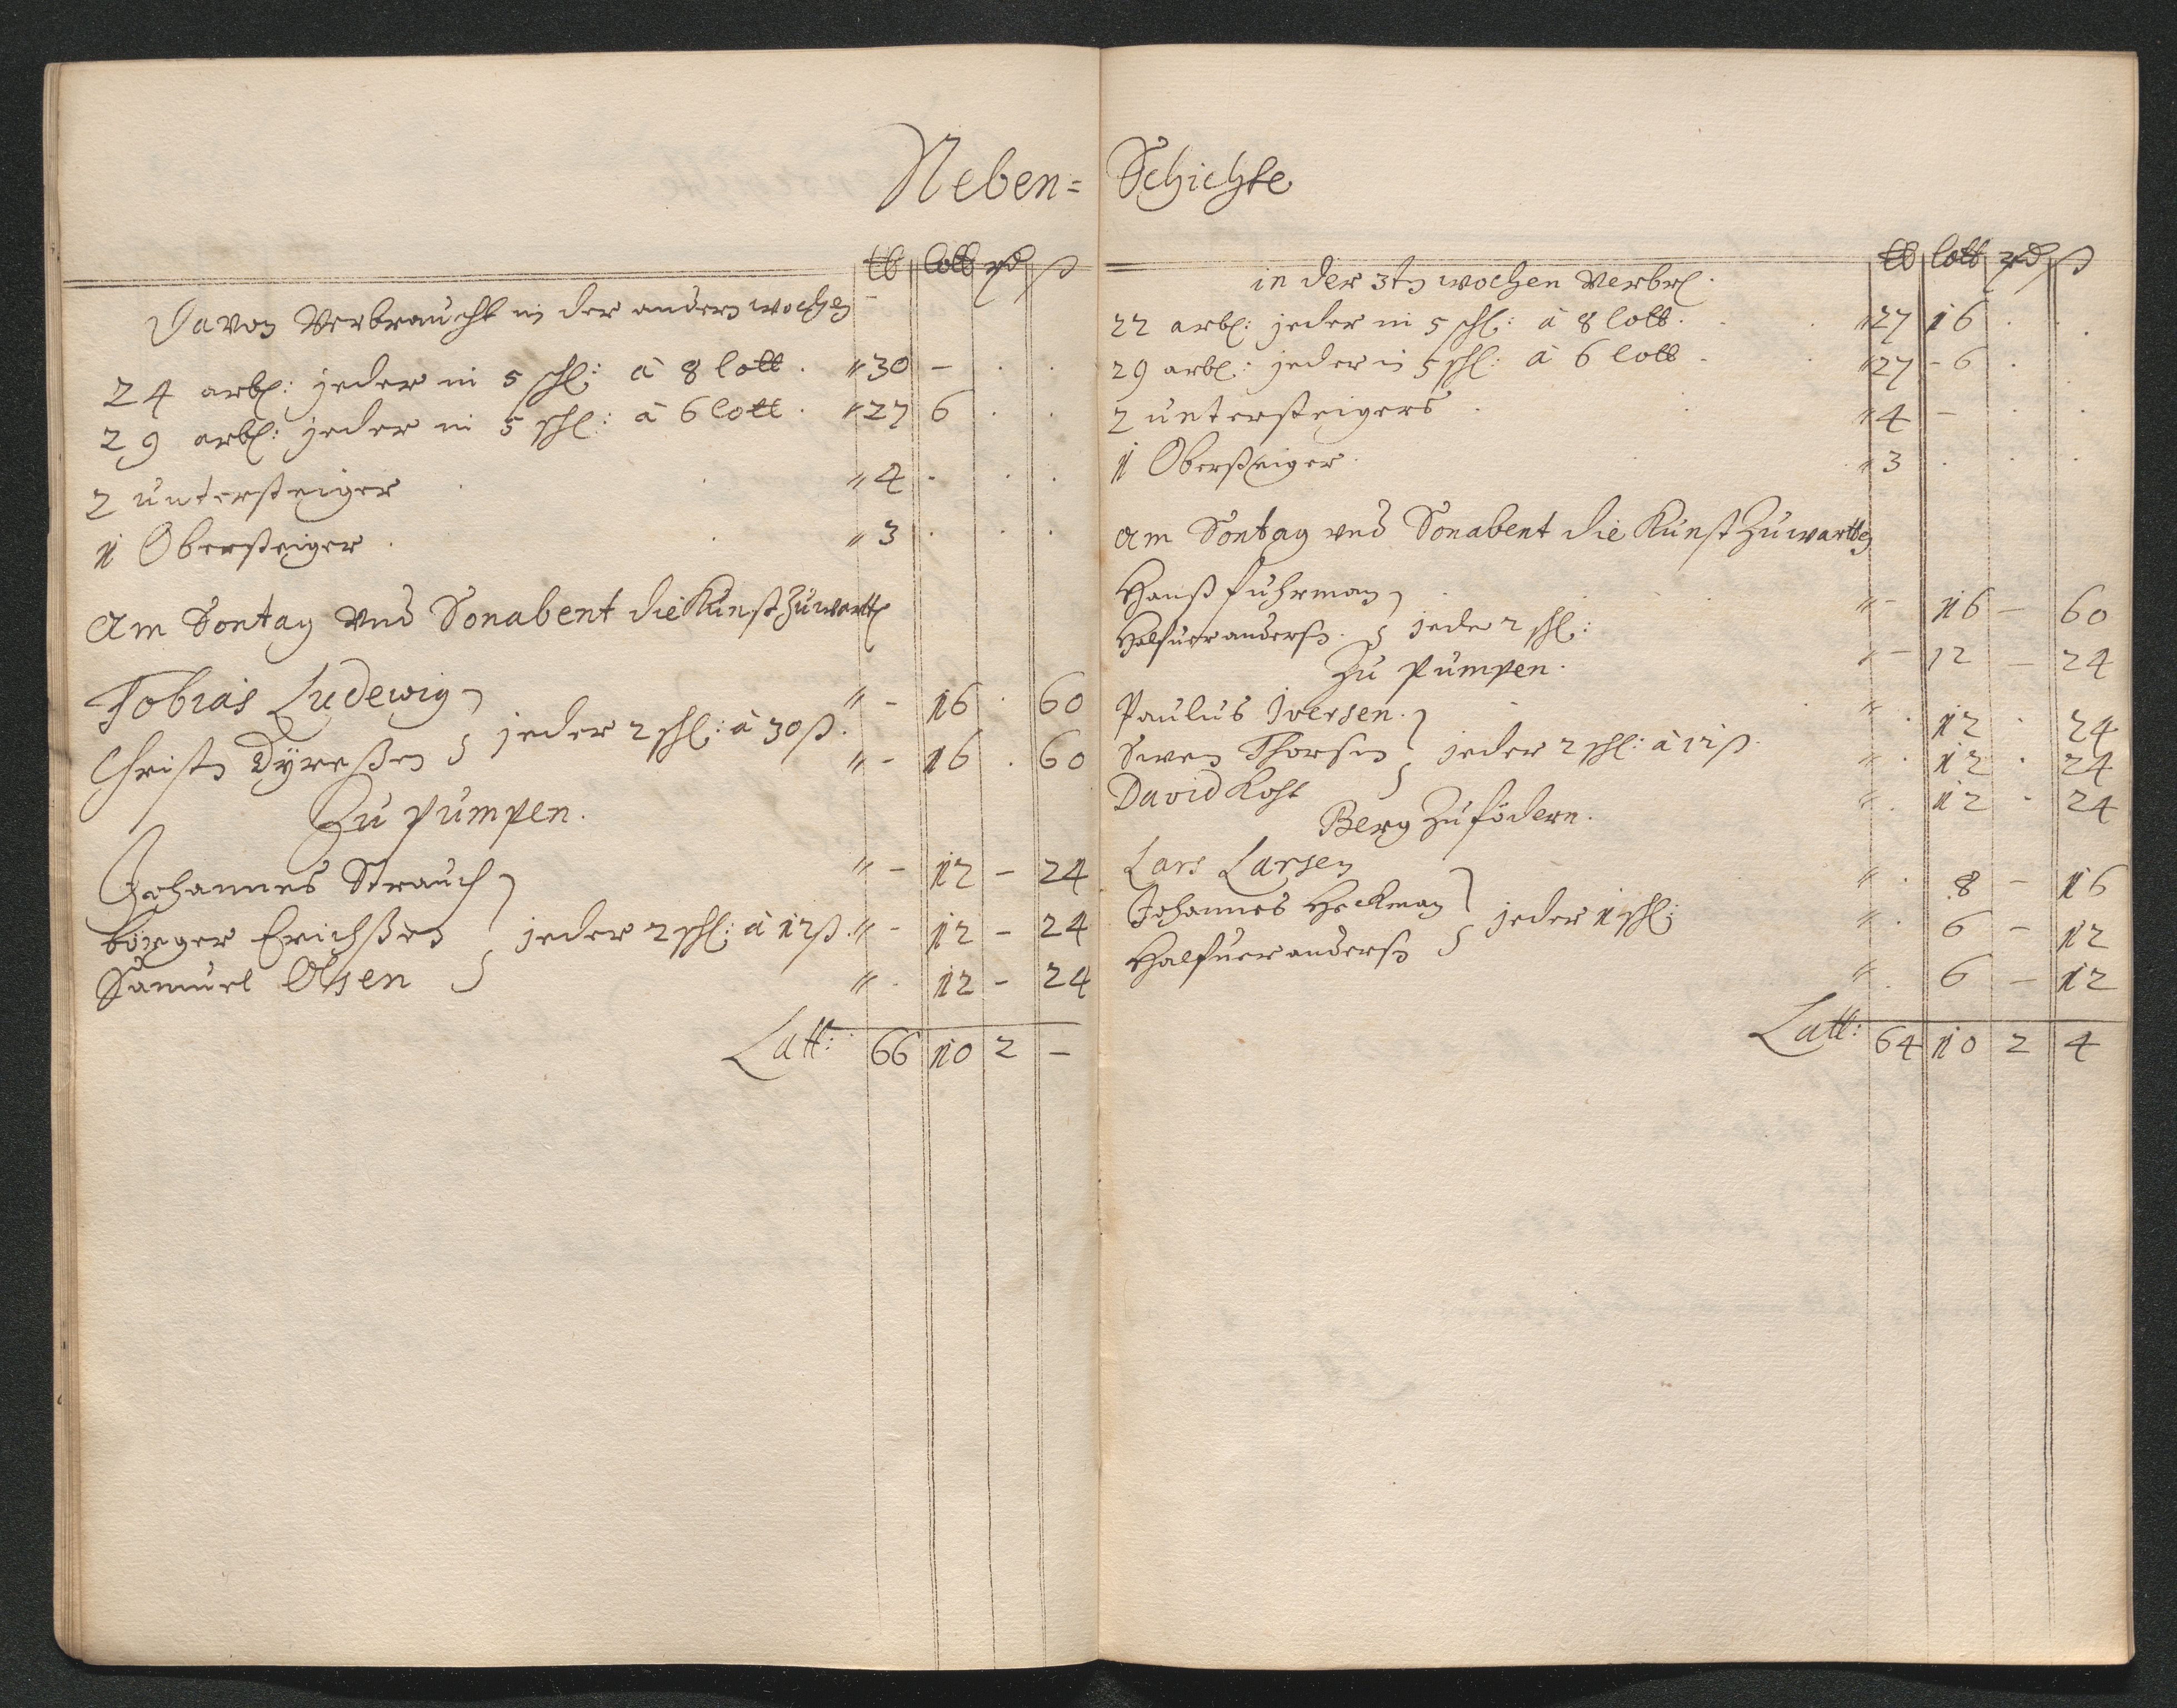 Neben= Schichte
lb lott rd ß
Davon Verbraucht in der andern wochen
24 arb: jeder in 5 schl: à 8 lott. " 30 - . .
29 arb: jeder in 5 schl: à 6 lott. " 27 6 . .
2 untersteiger . . " 4 . . .
1 Obersteiger . . " 3 . . .
Am Sontag und Sonabent die Kunst Zuwartten
Tobias Ludewig " - 16 . 60
jeder 2 schl: à 30 ß.
Christen Dÿressen " - 16 . 60
Zu pumpen.
Johannes Strauch " - 12 - 24
Börger Erichssen jeder 2 schl: à 12 ß. " - 12 - 24
Samuel Olsen " . 12 - 24
Latt: 66 10 2 -
lb lott rd ß
in der 3ten wochen Verbr.
22 arb: jeder in 5 schl: à 8 lott. " 27 16 . .
29 arb: jeder in 5 schl: à 6 lott " 27 - 6 . .
2 untersteigers . . " 4 - . .
1 Obersteiger . " 3 . . .
Am Sontag und Sonabent die Kunst Zuwartten
Hanß fuhrman " - 16 - 60
Halfuer anderss. jeder 2 schl: " - 12 - 24
Zu pumpen.
Paulus Iversen. " . 12 . 24
Swen Thorsen jeder 2 schl: à 12 ß. " . 12 . 24
David Koht " . 12 - 24
Berg Zu födern.
Lars Larsen " . 8 - 16
Johannes Heckman jeder 1 schl: " . 6 - 12
Halfuer anderss " . 6 - 12
Latt: 64 10 2 4